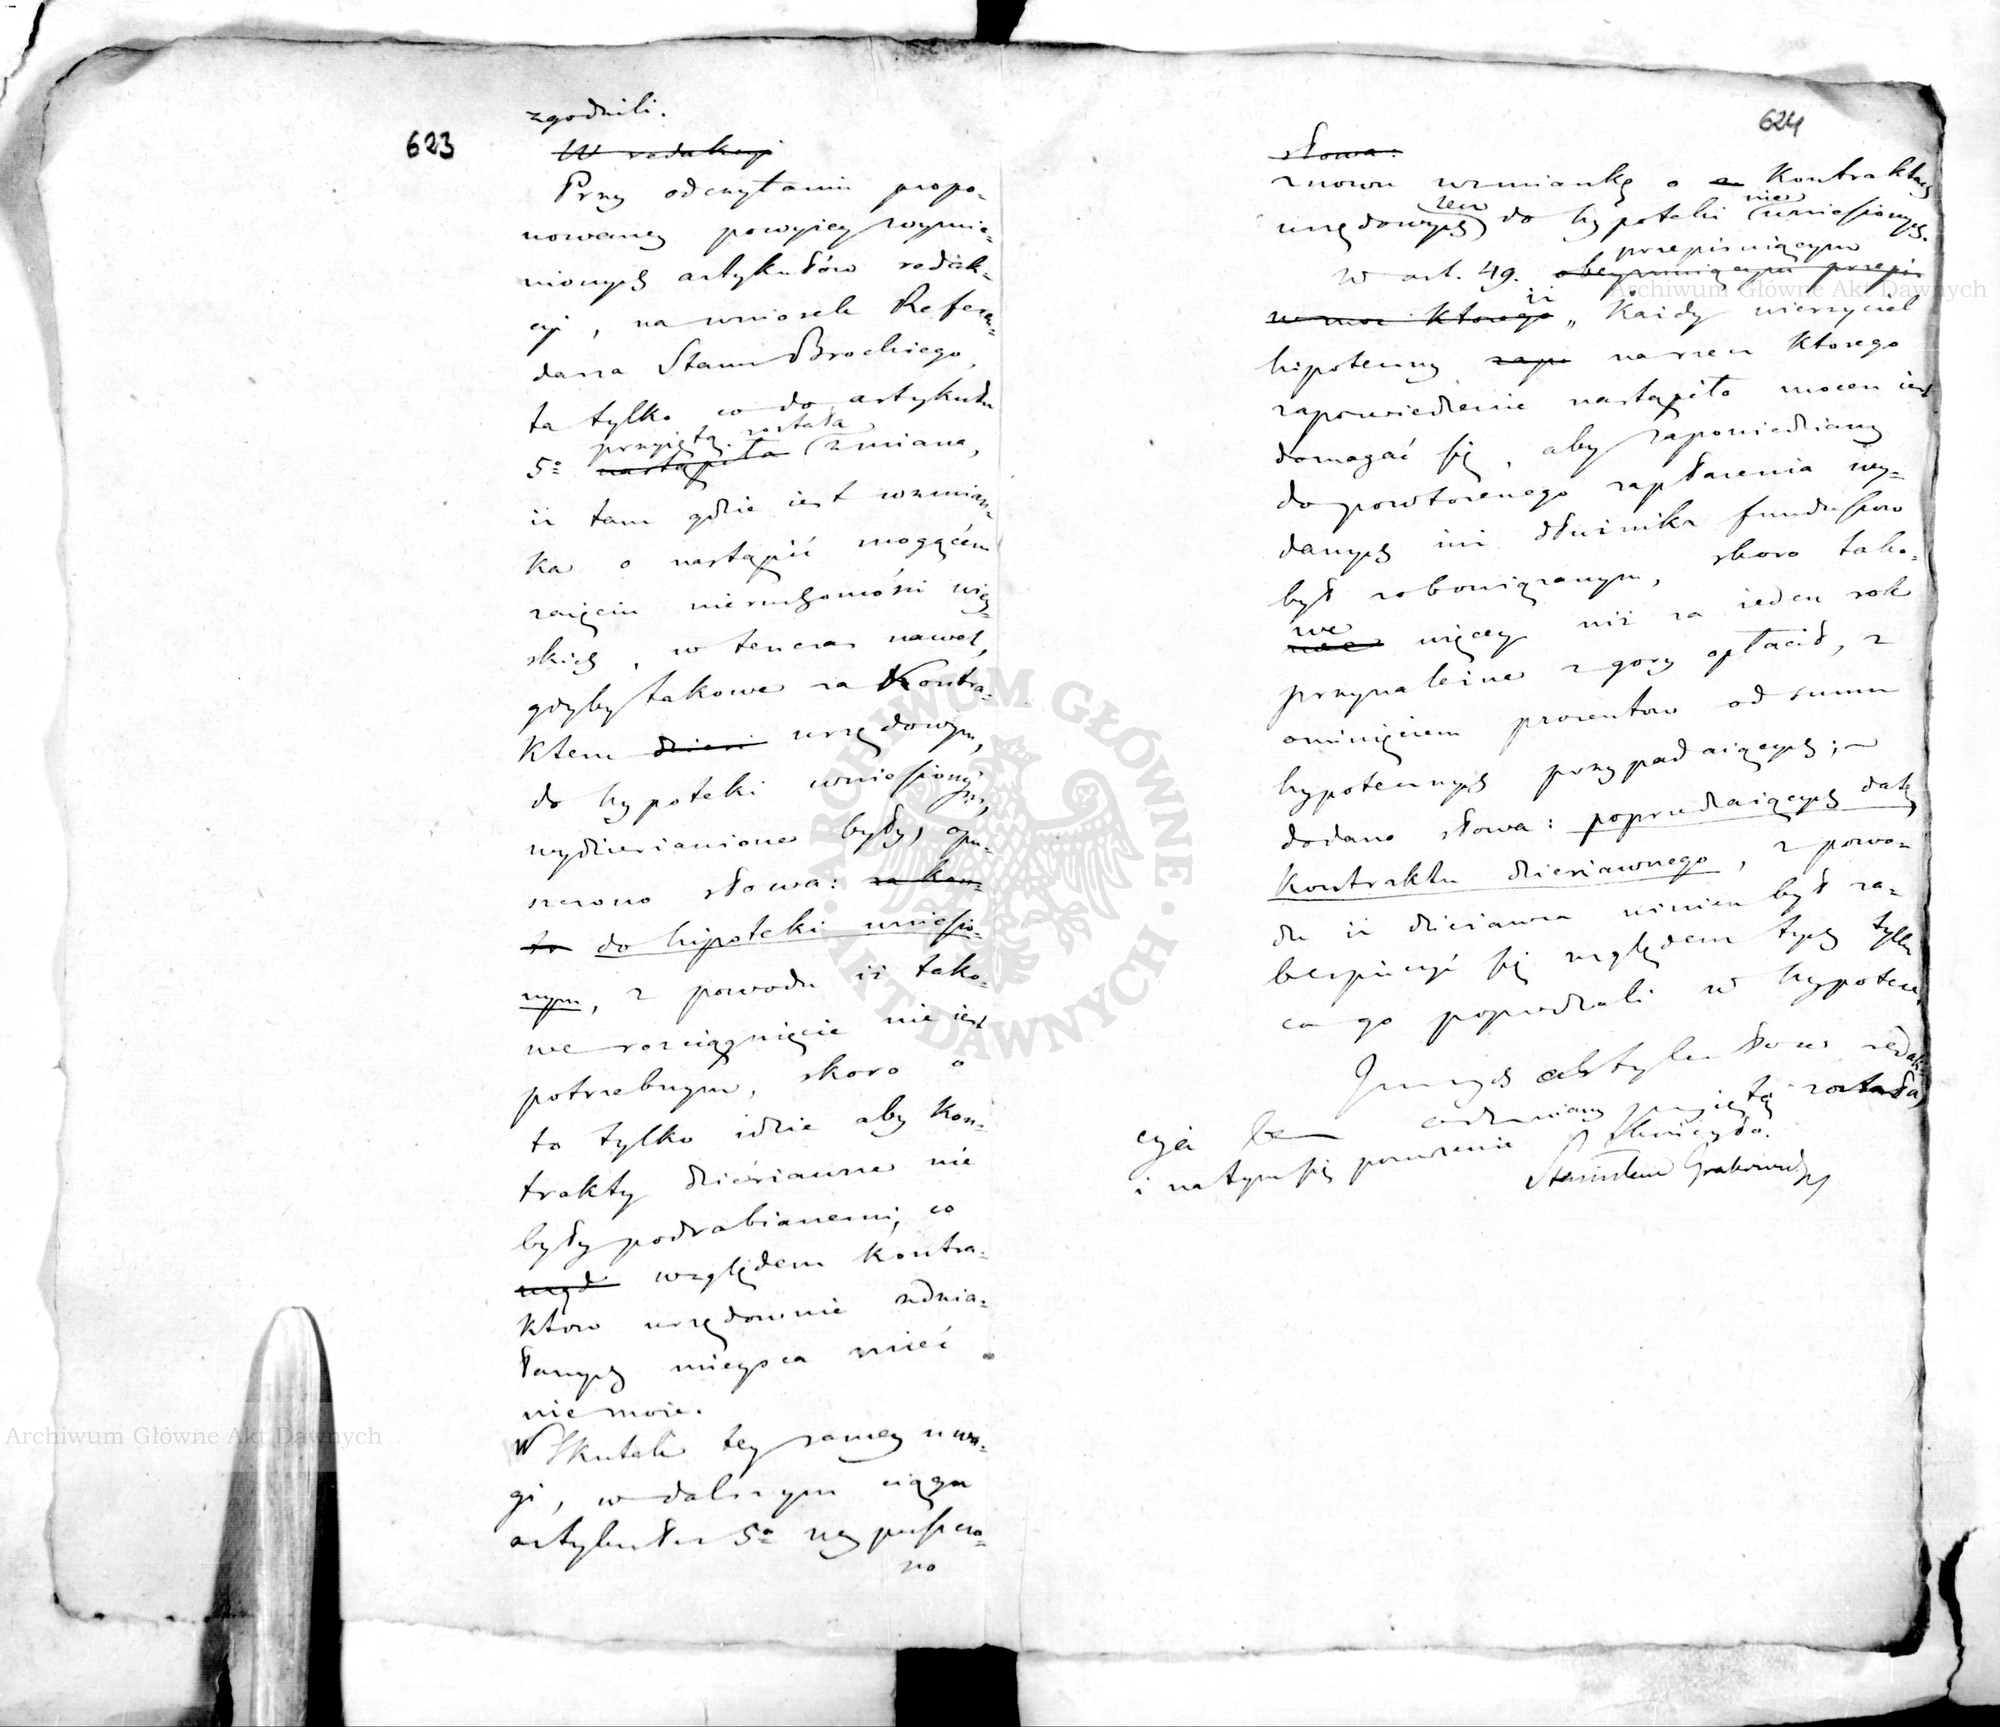 623
zgodzili.
W redakcyi
Przy odczytaniu propo-
nowaney powyżey wymie-
nionych artykułów redak-
cyi, na wniosek Referen-
darza Stanu Brockiego,
ta tylko co do artykułu
przyięta została
5º nastąpiła zmiana,
iż tam gdzie iest wzmian-
ka o nastąpić mogącém
zaięciu nieruchomości wiey-
skich, w tenczas nawet,
gdyby takowe za Kontra-
ktem dzierż urzędowym,
do hypoteki wniesionym,
wydzierżawione były, opu-
szczono słowa: za kon-
tr do hipoteki wniesio-
nym, z powodu iż tako-
we rozciągnięcie nie iest
potrzebnym, skoro o
to tylko idzie aby Kon-
trakty dzierżawne nie
były podrabianemi, co
urzęd względem Kontra-
ktow urzędownie zdzia-
łanych mieysca mieć
nie może.
W skutek tey samey uwa-
gi, w dalszym ciągu
artykułu 5º wypuszczo-
no
624
słowa:
znowu wzmiankę o Kontraktach
urzędowych do hypoteki nie wniesionych.
przepisuiącym
W art. 49. obeymuiącym przepis
w moc którego iż „Każdy wierzyciel
hipoteczny zapo na rzecz ktorego
zapowiedzenie nastąpiło mocen iest
domagać się, aby zapowiedziany
do powtórnego zapłacenia wy-
danych iuż dłużnika funduszow
był zobowiązanym, skoro tako-
we więcey niż za ieden rok
przynależne z gory opłacił, z
ominięciem procentow od summ
hypotecznych przypadaiących; –
dodano słowa: poprzedzaiących datę
Kontraktu dzierżawnego, z powo-
du iż dzierżawca winien był za-
bezpieczyć się względem tych tylko
co go poprzedzali w hypotece.
Innych artykułow redak-
cya bez odmiany przyięta została,
i na tym się posiedzenie skończyło.
Stanisław Grabowski